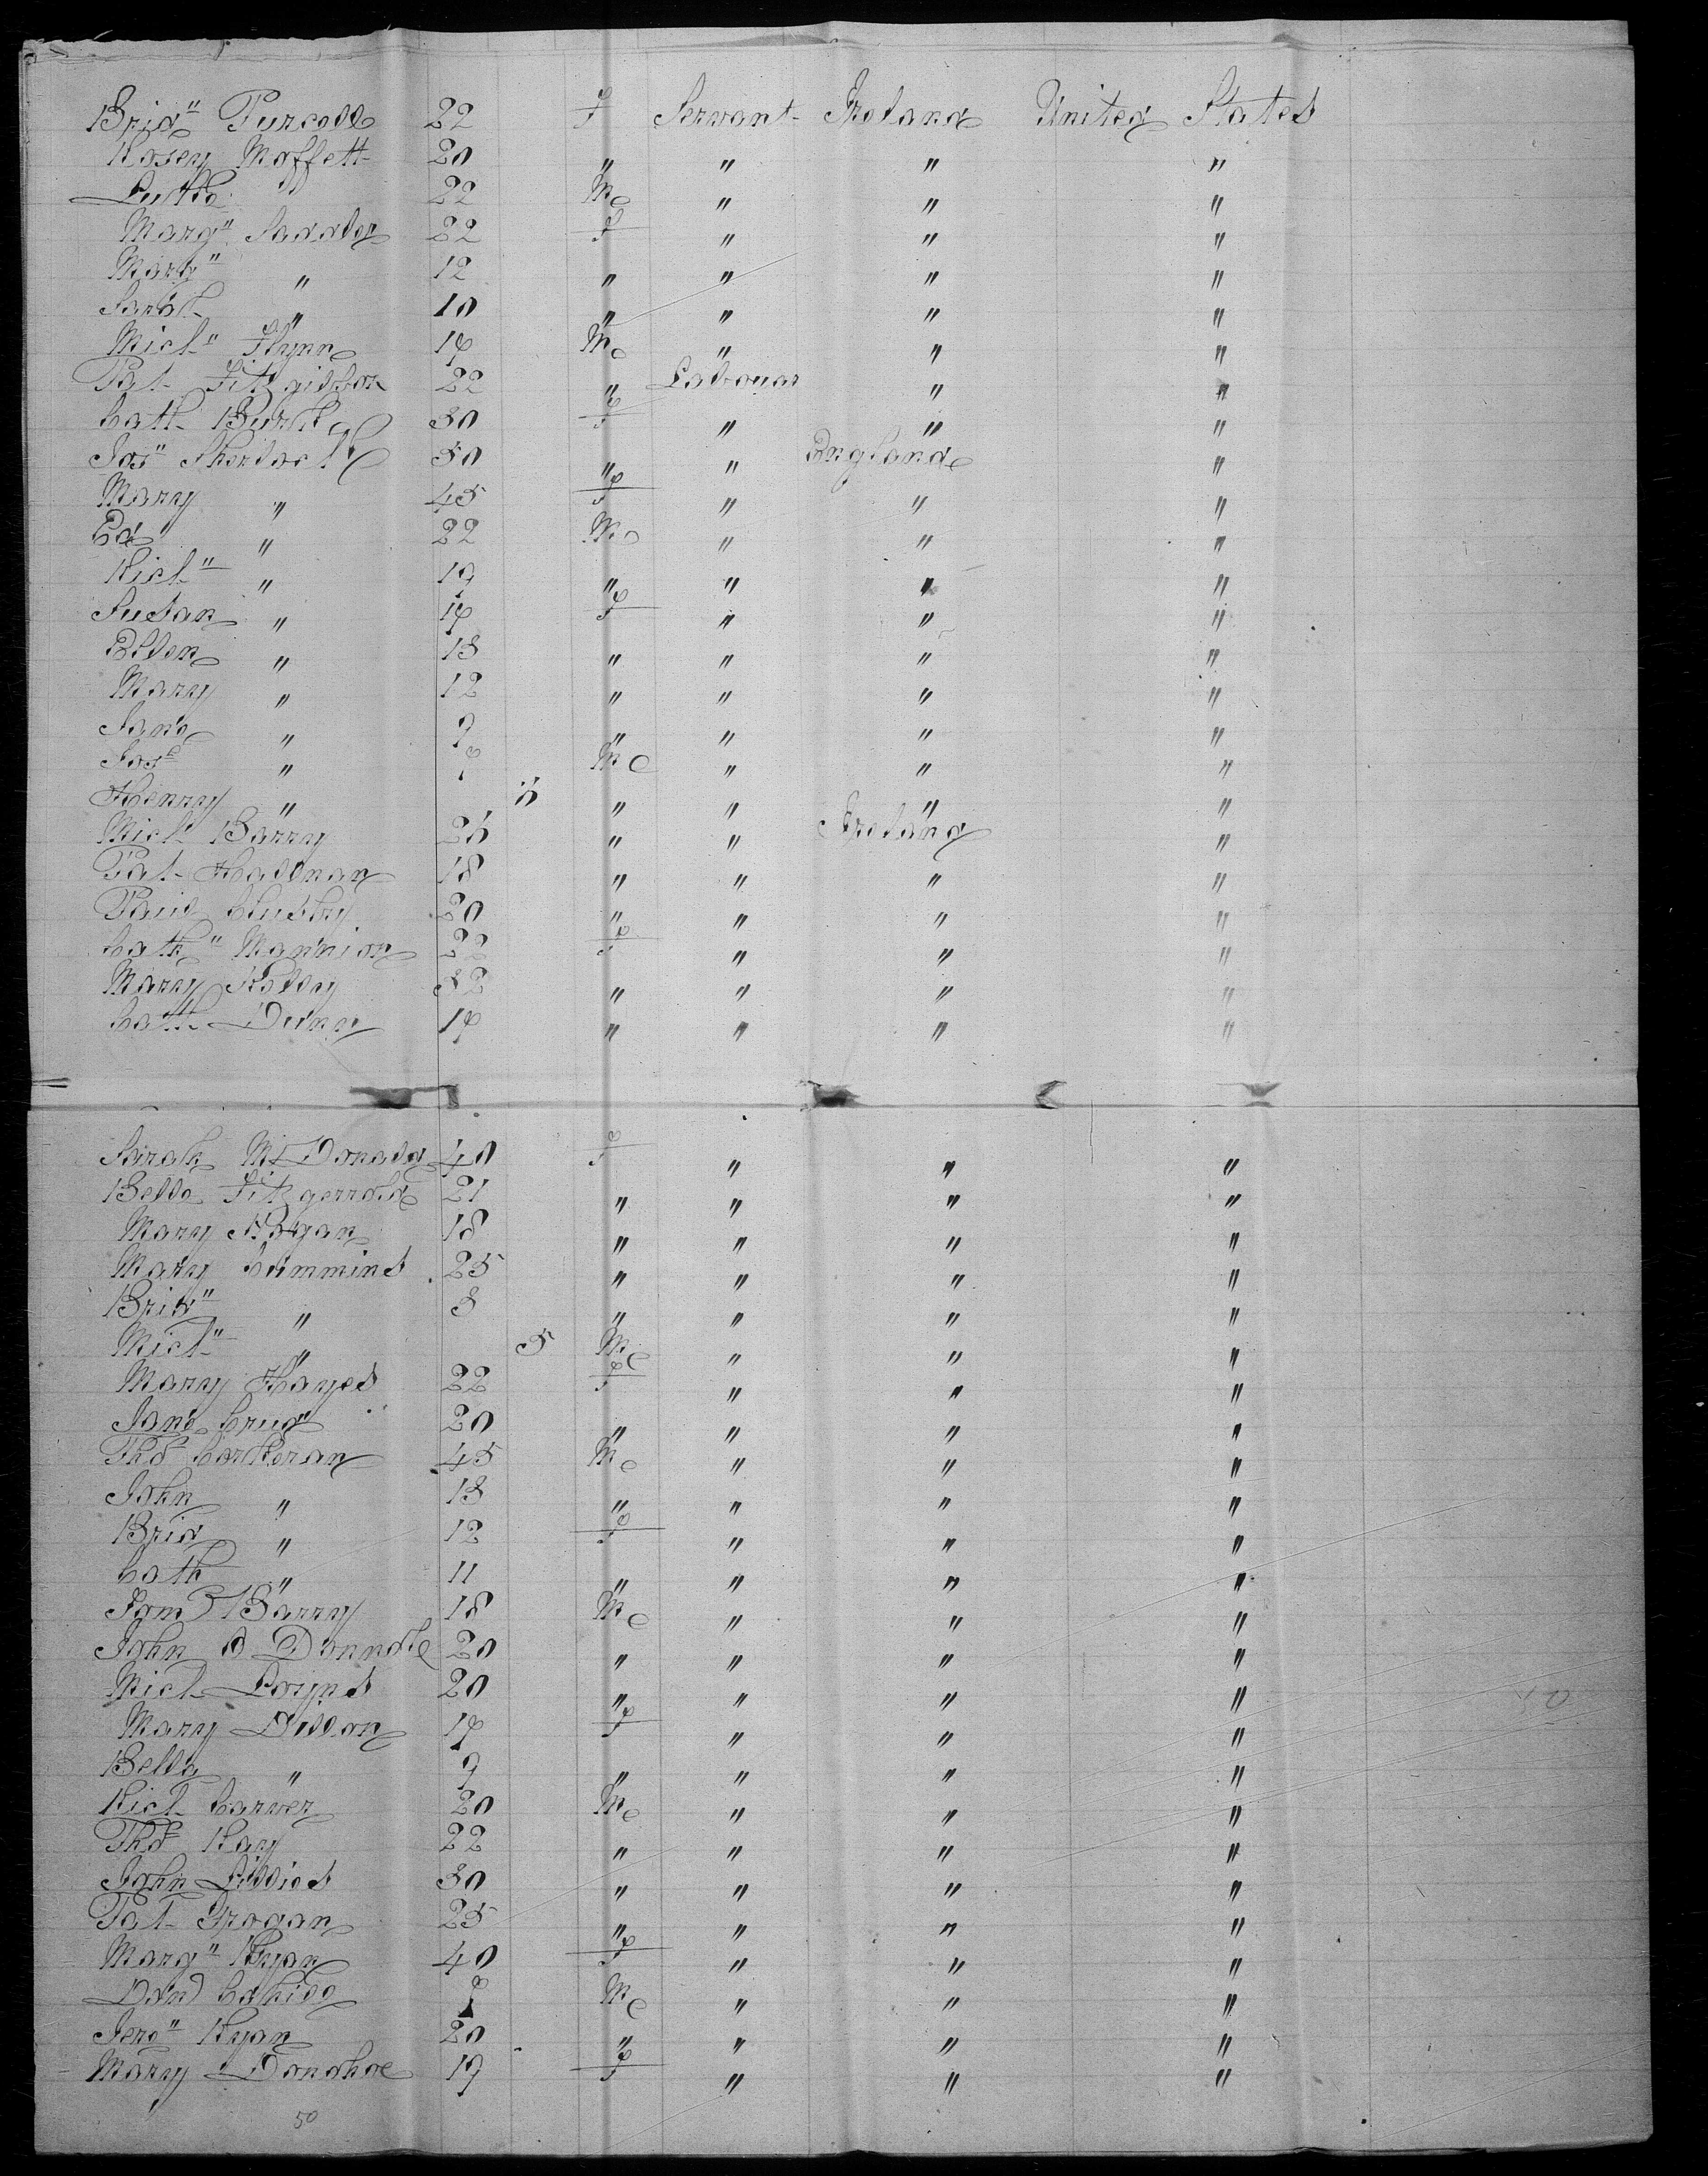 Brid" Purcell 22 F Servant Ireland United States
Rosey Moffett 20 " " " "
Luke " 22 M " " "
Marg" Saddler 22 F " " "
Mary " 12 " " " "
Sarah " 10 " " " "
Mich" Flynn 14 M " " "
Pat Fitzgibbon 22 " Labouar " "
Cath Burk 30 F " " "
Jos" Sherlock 50 " " England "
Mary " 45 F " " "
Ed " 22 M " " "
Rich" " 19 " " " "
Susan " 14 F " " "
Ellen " 13 " " " "
Mary " 12 " " " "
Jane " 9 " " " "
Jos " M " " "
Henry " " " " "
Mich Barry 26 " " Ireland "
Pat Hallnan 18 " " " "
Paul Clusky 20 " " " "
Cath" Mannion 22 F " " "
Mary Kelly 32 " " " "
Cath Dunn 14 " " " "
Sarah McDonald 40 F " " "
Bella Fitzgerrald 21 " " " "
Mary Hogan 18 " " " "
Mary Cummins 25 " " " "
Brid" " 3 " " " "
Mich" " 5 M " " "
Mary Hayes 22 F " " "
Jane 20 " " " "
Thos Corkeran 45 M " " "
John " 13 " " " "
Brid " 12 F " " "
Cath " 11 " " " "
Jam Barry 18 M " " "
John O Donnole 20 " " " "
Mich Loyns 20 " " " "
Mary Dillon 14 F " " "
Bella " 9 " " " "
Rich Carver 20 M " " "
Thos Kay 22 " " " "
John Lillies 30 " " " "
Pat Grogan 25 " " " "
Marg" Ryan 40 F " " "
Dan Cahill M " " "
Jero" Ryan 20 " " " "
Mary Donohoe 19 F " " "
50